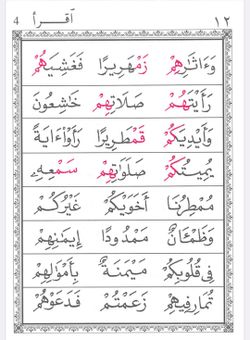 ١٢ أقـــرأ 4
وَءَاثَـٰرِهِمْ زَمْهَرِيرًا فَغَشِيَهُمْ
رَأَيْتَهُمْ صَلَاتِهِمْ خَـٰشِعُونَ
وَأَيْدِيَكُمْ قَمْطَرِيرًا رَأَوْا۟ءَايَةً
يُمِيتُكُمْ صَلَوَٰتِهِمْ سَمْعِهِۦ
مُمْطِرُنَا أَخَوَيْكُمْ غَيْرُكُمْ
وَظَمْـَٔانٌ مَمْدُودًا إِيمَـٰنِهِمْ
فِى قُلُوبِكُمْ مَيْمَنَةٌ بِأَمْوَٰلِهِمْ
تُمَارِفِيهِمْ زَعَمْتُمْ فَدَعَوْهُمْ